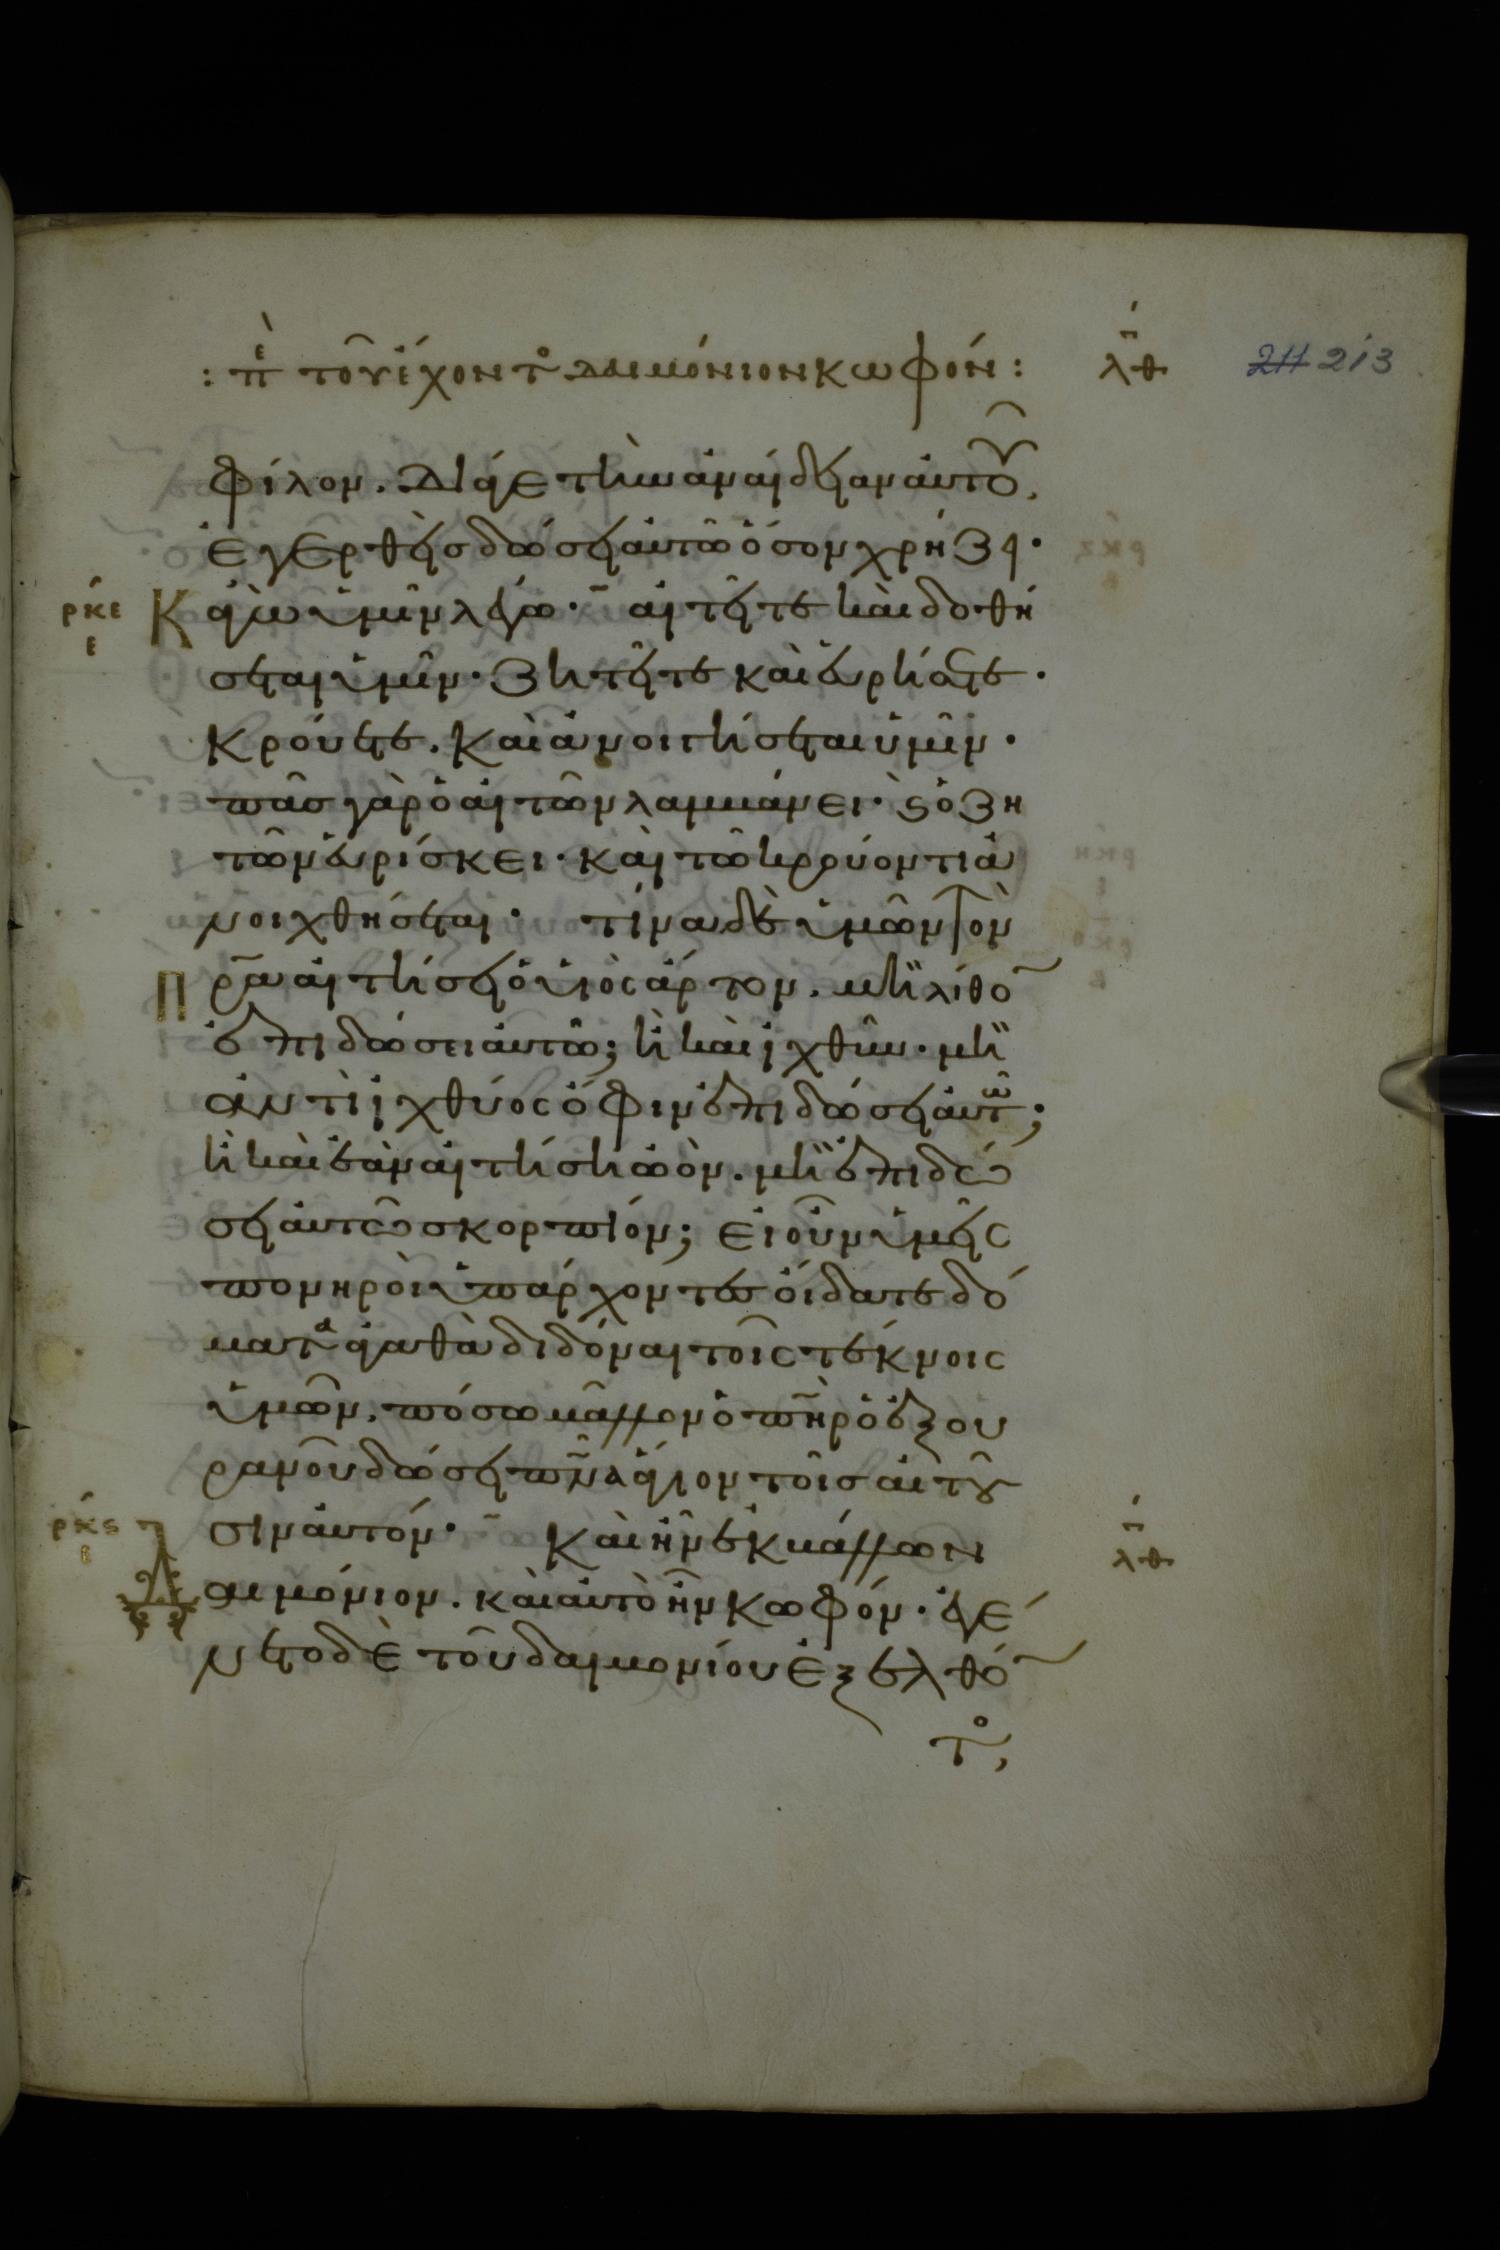 : πε τοῦ ἔχοντο δαιμόνιον κωφόν : λθ 213
φίλον. διά γε τὴν ἀναίδειαν αὐτοῦ,
ἐγερθεὶς δώσει αὐτῶ ὅσον χρήζει·
ρκε ε Κἀγὼ ὑμῖν λέγω· αἰτεῖτε καὶ δοθή
σεται ὑμῖν· ζητεῖτε καὶ εὑρήσετε·
κρούετε. καὶ ἀνοιγήσεται ὑμῖν·
πᾶσ γὰρ ὁ αἰτῶν λαμβάνει· ϛ ὁ ζη
τῶν εὑρίσκει· καὶ τῶ κρούοντι ἀ
νοιχθήσεται· τίνα δὲ ὑμῶν τὸν
Πρ̅α αἰτήσει ὁ υἱὸς ἄρτον. μὴ λίθο
ἐπιδώσει αὐτῶ; ἢ καὶ ἰχθῦν· μὴ
ἀντὶ ἰχθύος ὄφιν ἐπιδώσει αὐτῶ;
ἢ καὶ ἐὰν αἰτήση ὠόν. μὴ ἐπιδώ
σει αὐτῶ σκορπίον; εἰ οὖν ὑμεῖς
πονηροὶ ὑπάρχοντεσ οἴδατε δό
ματα ἀγαθὰ διδόναι τοῖς τέκνοις
ὑμῶν. πόσω μᾶλλον ὁ πη̅ρ ὁ ἐξ οὐ
ρανοῦ δώσει πν̅α ἅγιον τοῖσ αἰτοῦ
σιν αὐτόν· Καὶ ἦν ἐκβάλλων
ρκϛ ε Δαιμόνιον. καὶ αὐτὸ ἦν κωφόν· ἐγέ λθ
νετο δὲ τοῦ δαιμονίου ἐξελθό
το,